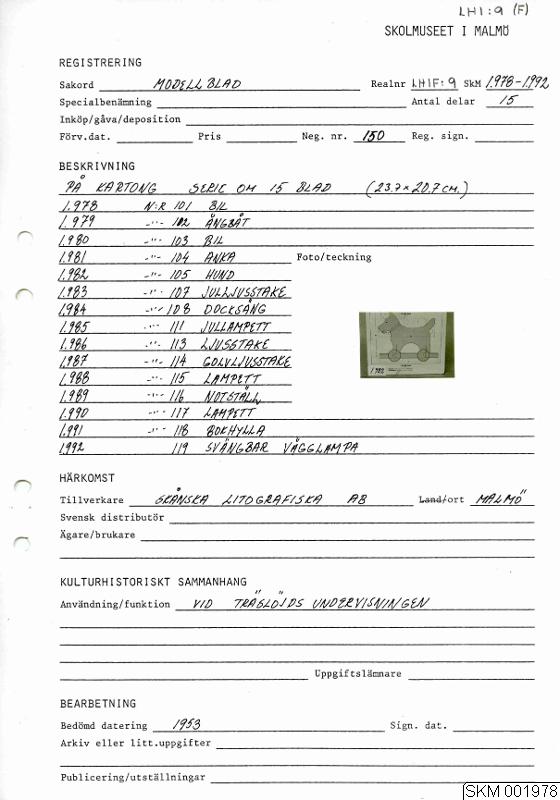 LH1:9 (F)
SKOLMUSEET I MALMÖ
REGISTRERING
Sakord MODELLBLAD Realnr LH1F:9 SkM 1.978-1.992
Specialbenämning Antal delar 15
Inköp/gåva/deposition
Förv.dat. Pris Neg. nr. 150 Reg. sign.
BESKRIVNING
PÅ KARTONG SERIE OM 15 BLAD (23.7 x 20.7 CM.)
1.978 N:R 101 BIL
1.979 -"- 102 ÅNGBÅT
1.980 -"- 103 BIL
1.981 -"- 104 ANKA Foto/teckning
1.982 -"- 105 HUND
1.983 -"- 107 JULLJUSSTAKE
1.984 -"- 108 DOCKSÄNG
1.985 -"- 111 JULLAMPETT
1.986 -"- 113 LJUSSTAKE
1.987 -"- 114 GOLVLJUSSTAKE
1.988 -"- 115 LAMPETT
1.989 -"- 116 NOTSTÄLL
1.990 -"- 117 LAMPETT
1.991 -"- 118 BOKHYLLA
1.992 119 SVÄNGBAR VÄGGLAMPA
HÄRKOMST
Tillverkare SKÅNSKA LITOGRAFISKA AB Land/ort MALMÖ
Svensk distributör
Ägare/brukare
KULTURHISTORISKT SAMMANHANG
Användning/funktion VID TRÄSLÖJDS UNDERVISNINGEN
Uppgiftslämnare
BEARBETNING
Bedömd datering 1953 Sign. dat.
Arkiv eller litt.uppgifter
Publicering/utställningar
SKM 001978